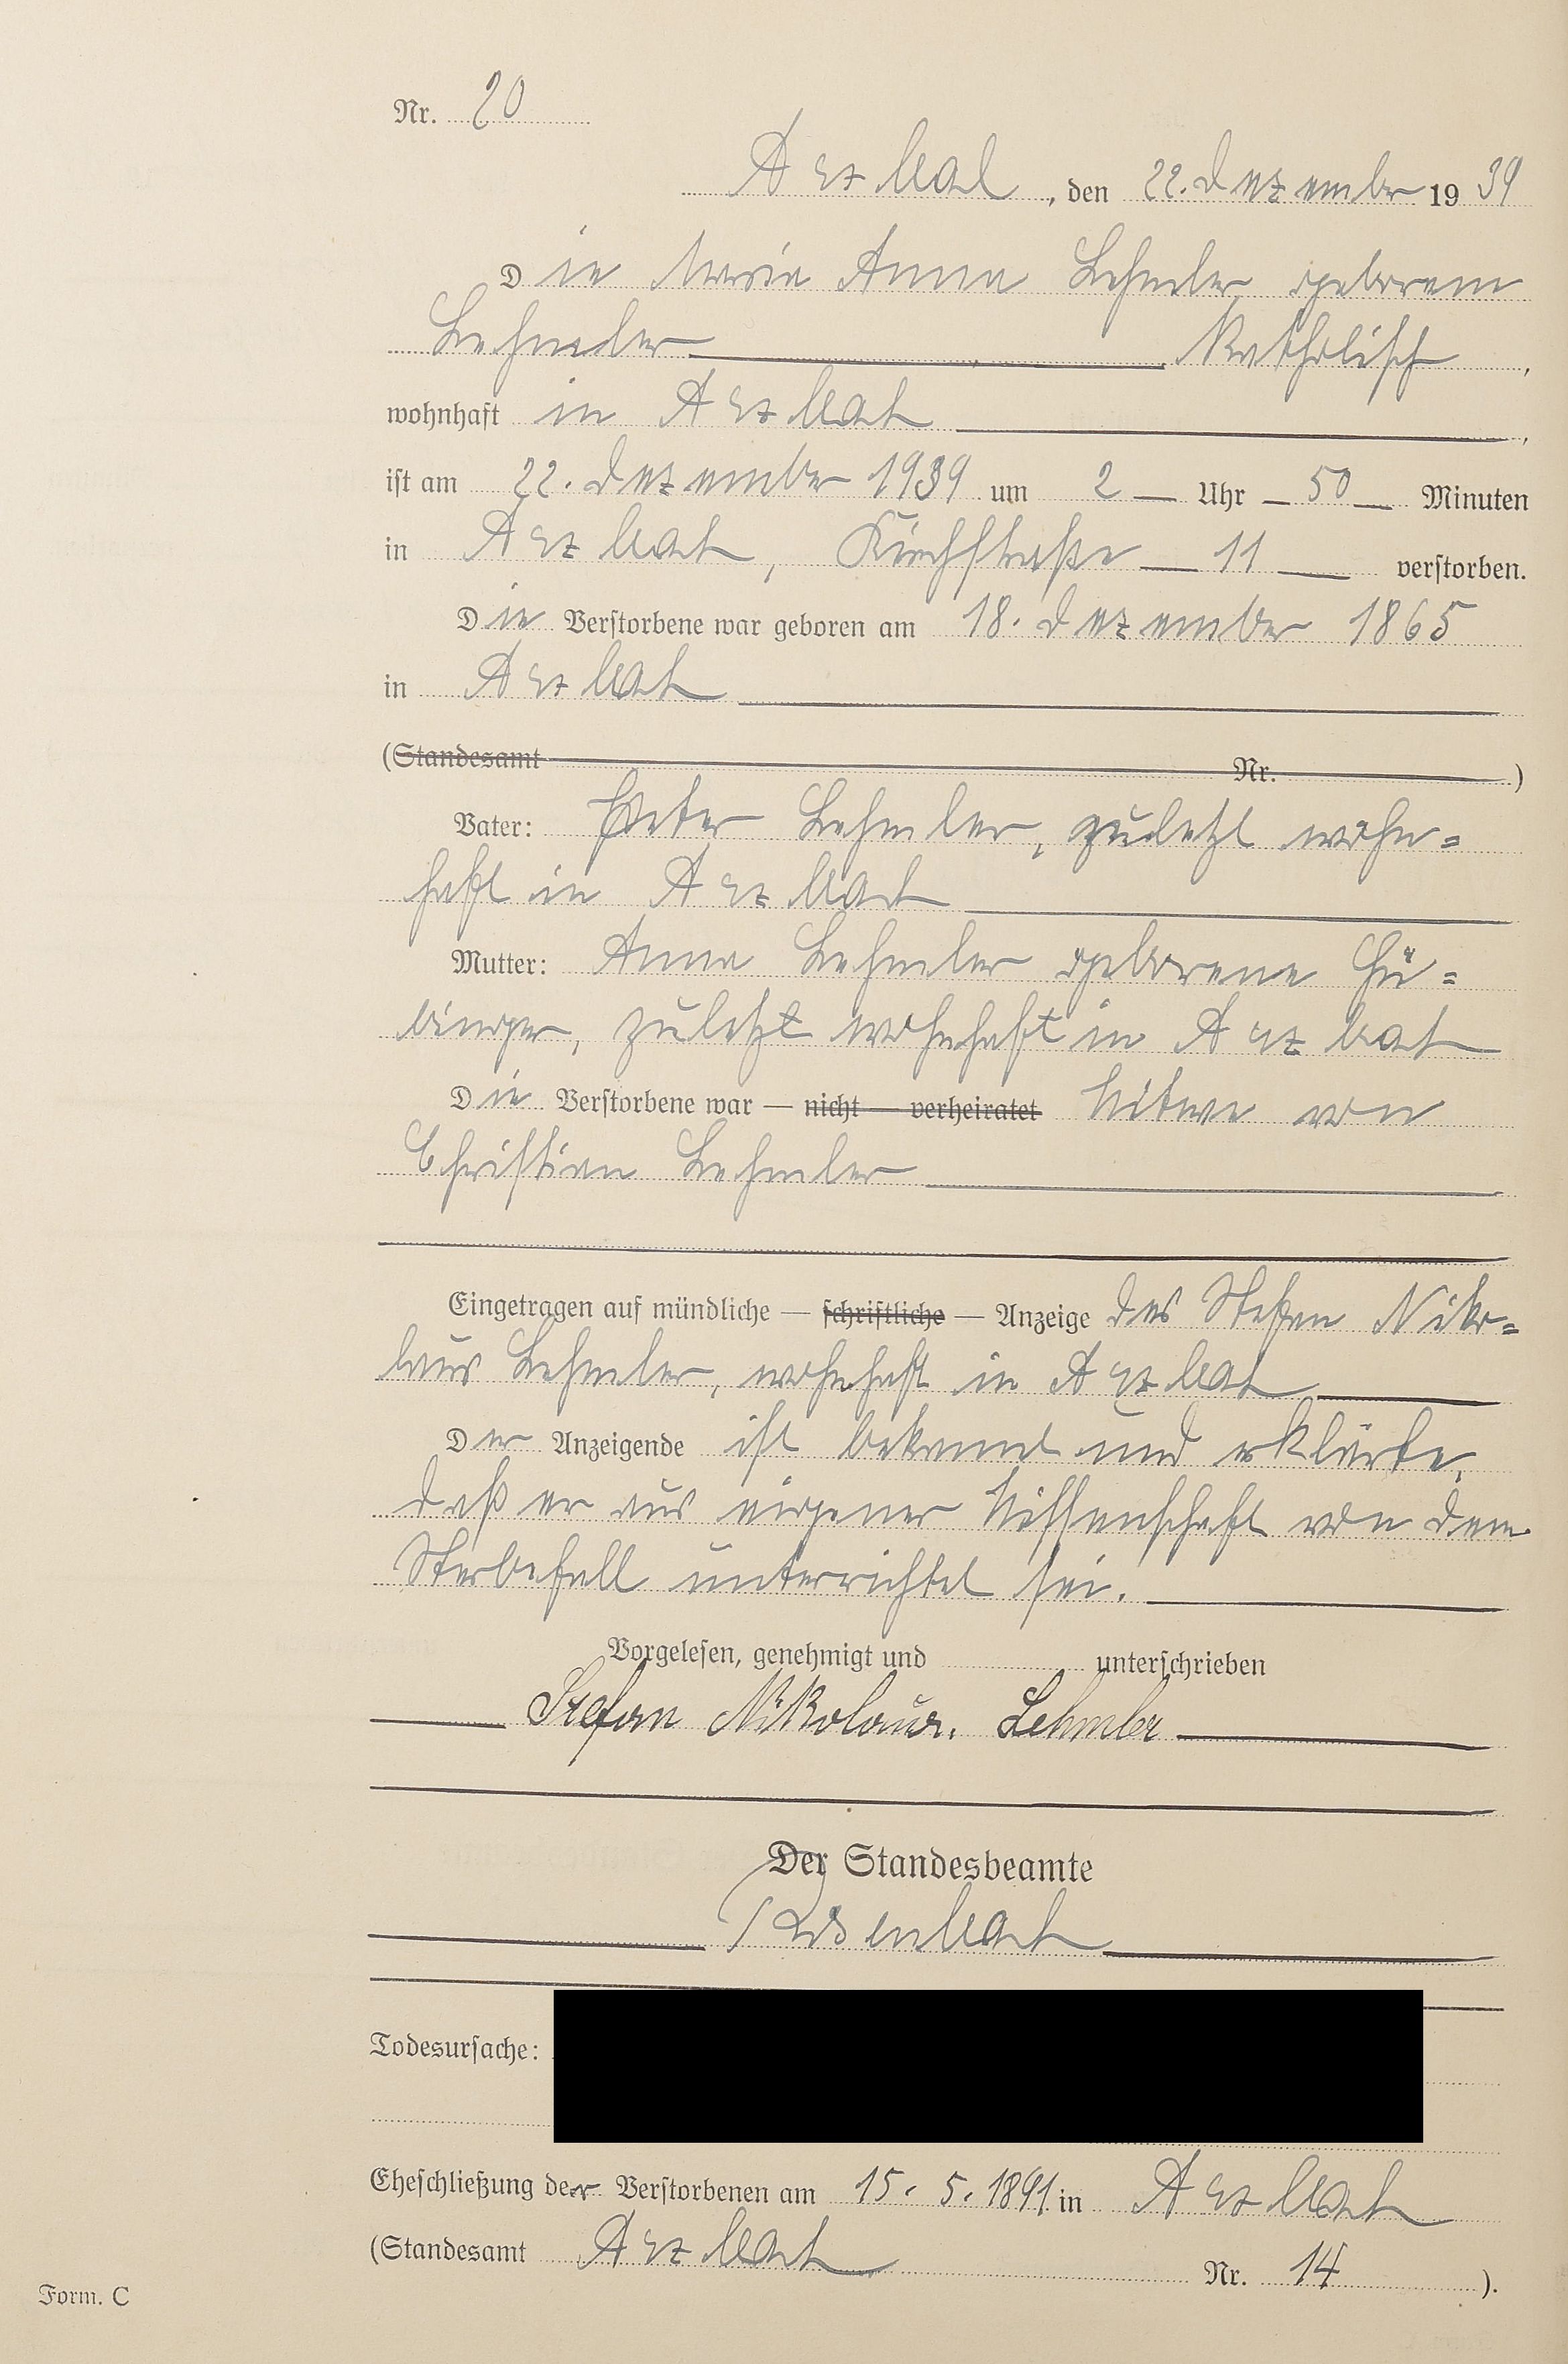 Nr. 20
Arzbach, den 22. Dezember 1939
Die Maria Anna Lehmler geborene
Lehmler Katholisch,
wohnhaft in Arzbach,
ist am 22. Dezember 1939 um 2 — Uhr — 50 — Minuten
in Arzbach, Kirchstraße — 11 — verstorben.
Die Verstorbene war geboren am 18. Dezember 1865
in Arzbach
(Standesamt Nr. )
Vater: Peter Lehmler, zuletzt wohn=
haft in Arzbach
Mutter: Anna Lehmler geborene Hü=
binger, zuletzt wohnhaft in Arzbach
Die Verstorbene war — nicht — verheiratet Witwe von
Christian Lehmler
Eingetragen auf mündliche — schriftliche — Anzeige des Stefan Niko=
laus Lehmler, wohnhaft in Arzbach
Der Anzeigende ist bekannt und erklärte,
daß er aus eigener Wissenschaft von dem
Sterbefall unterrichtet sei.
Vorgelesen, genehmigt und unterschrieben
Stefan Nikolaus. Lehmler
Der Standesbeamte
Todesursache:
Eheschließung der Verstorbenen am 15. 5. 1891 in Arzbach
(Standesamt Arzbach Nr. 14 ).
Form. C